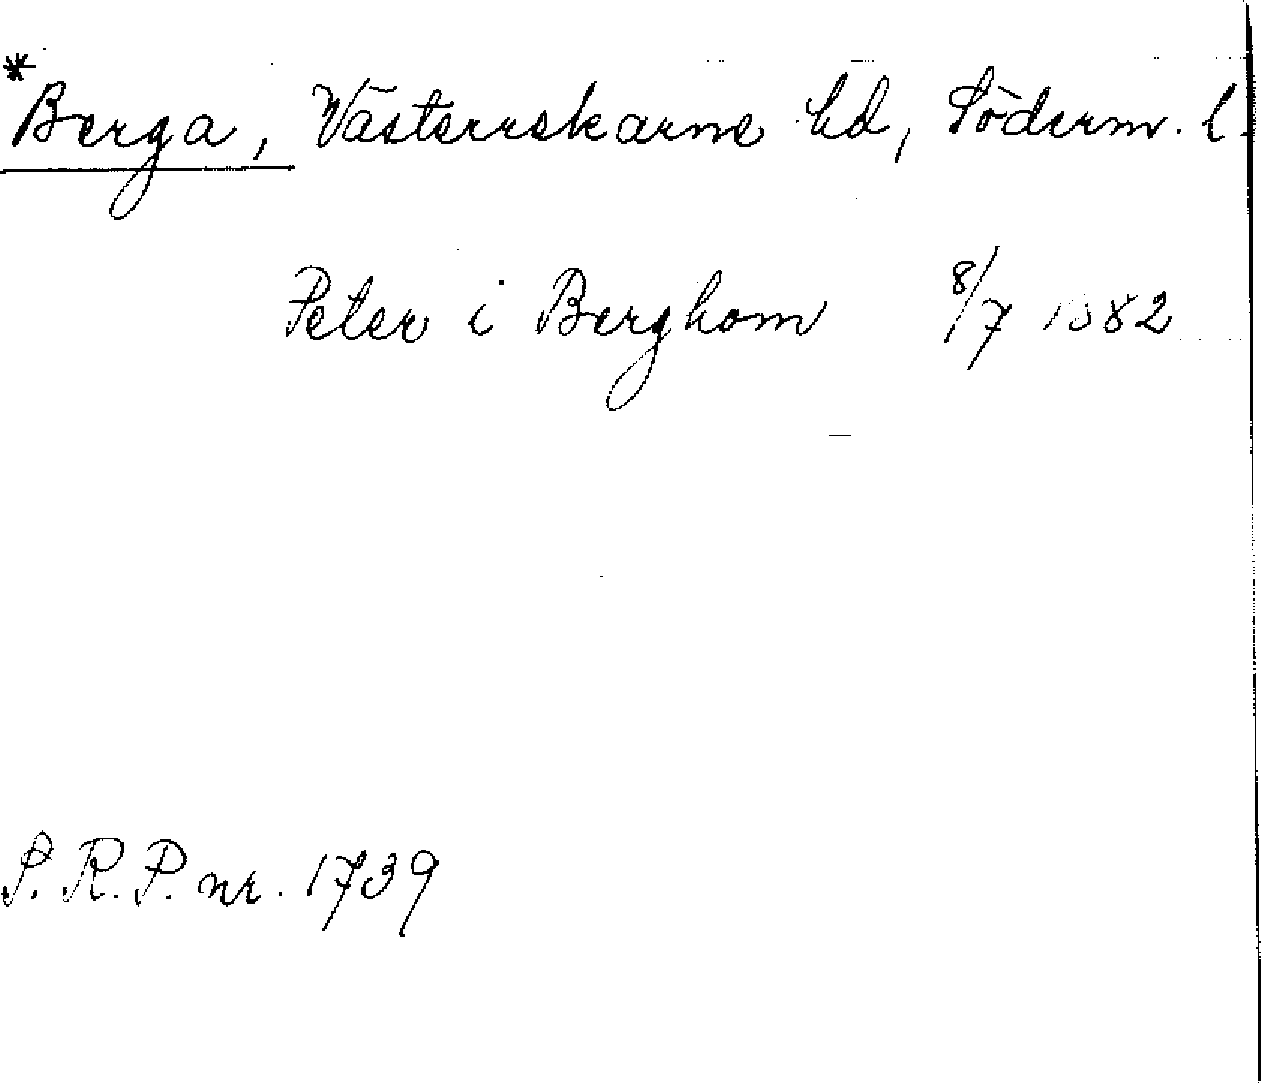 *Berga, Västerrekarne hd, Söderm. l.
Peter i Berghom 8/7 1382
S. R. P. nr. 1739